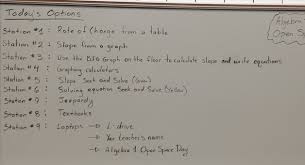 Today's Options
Station #1: Rate of Change from a table
Station #2: Slope from a graph
Station #3: Use the BIG Graph on the floor to calculate slope and write equations
Station #4: Graphing calculators
Station #5: Slope Seek and Solve (Green)
Station #6: Solving equation Seek and Solve (Yellow)
Station #7: Jeopardy
Station #8: Textbooks
Station #9: Laptops → L: drive
→ Your teachers name
→ Algebra 1 Open Space Day
Algebra
Open S